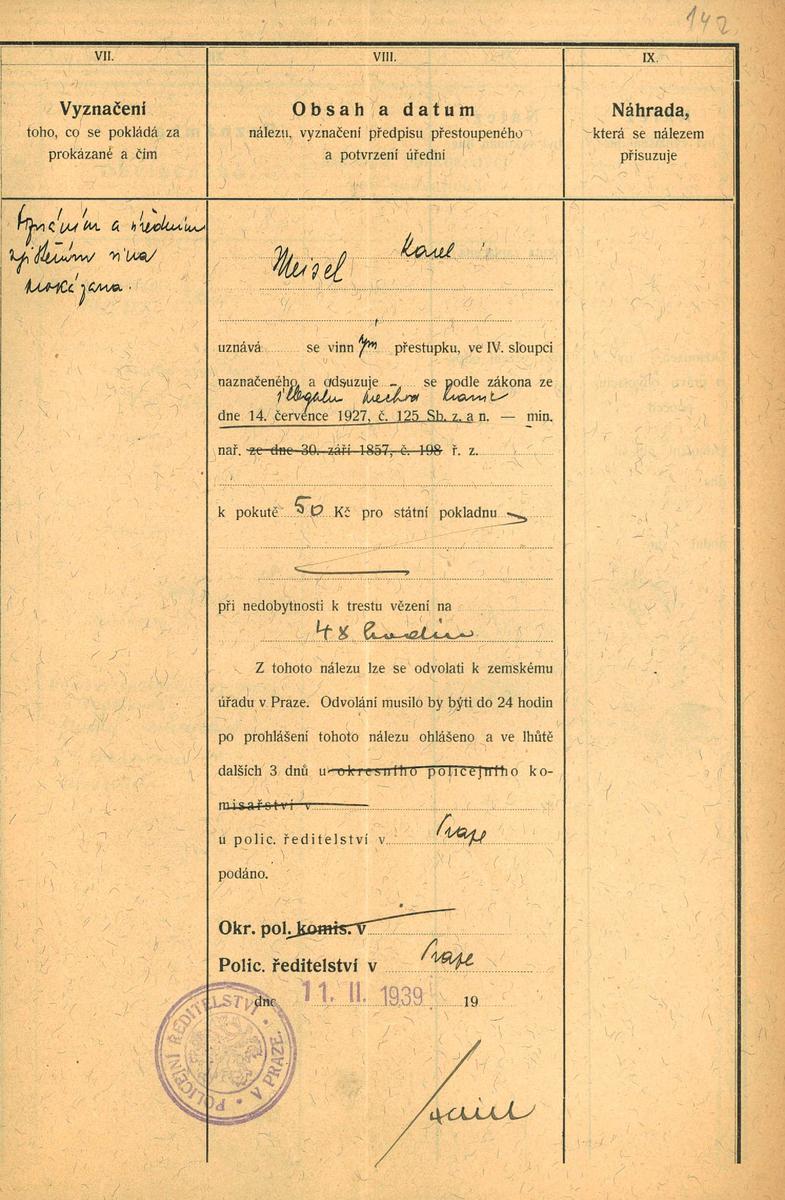 142
VII.
Vyznačení
toho, co se pokládá za
prokázané a čím
VIII.
Obsah a datum
nálezu, vyznačení předpisu přestoupeného
a potvrzení úřední
IX.
Náhrada,
která se nálezem
přisuzuje
Doznáním a úředním
zjištěním vina
prokázana.
Meisel Karel
uznává se vinn ým přestupku, ve IV. sloupci
naznačeného a odsuzuje – se podle zákona ze
illegalní přechod hranic
dne 14. července 1927, č. 125 Sb. z. a n. — min.
nař. ze dne 30. září 1857, č. 198 ř. z.
k pokutě 50 Kč pro státní pokladnu
při nedobytnosti k trestu vězení na
48 hodin
Z tohoto nálezu lze se odvolati k zemskému
úřadu v Praze. Odvolání musilo by býti do 24 hodin
po prohlášení tohoto nálezu ohlášeno a ve lhůtě
dalších 3 dnů u okresního policejního ko-
misařství v
u polic. ředitelství v Praze
podáno.
Okr. pol. komis. v
Polic. ředitelství v Praze
dne 11. II. 1939 19
POLICEJNÍ ŘEDITELSTVÍ • V PRAZE •